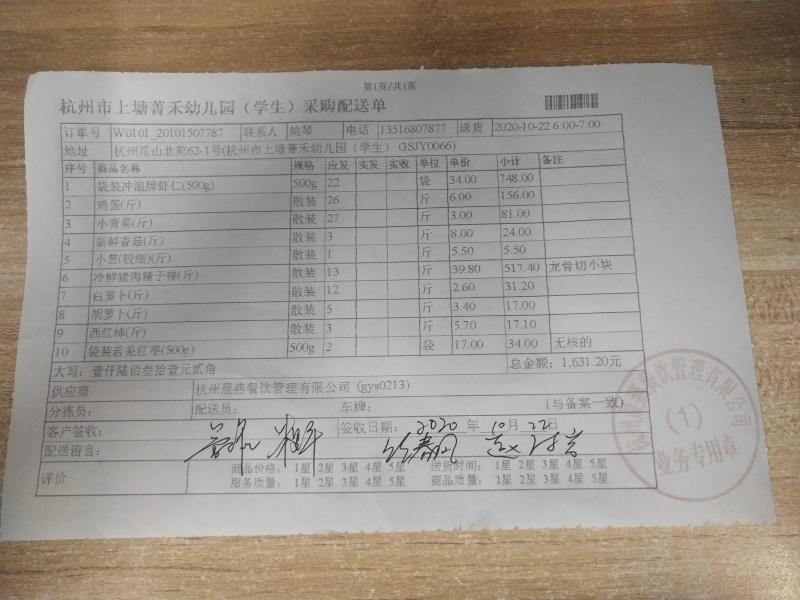 第1页/共1页
杭州市上塘菁禾幼儿园（学生）采购配送单
订单号 W0101_20101507787 联系人 姚琴 电话 13516807877 送货 2020-10-22 6:00-7:00
地址 杭州瓜山北苑62-1号(杭州市上塘菁禾幼儿园（学生） GSJY0066)
序号 商品名称 规格 应发 实发 实收 单位 单价 小计 备注
1 袋装冲浪牌虾仁(500g) 500g 22 袋 34.00 748.00
2 鸡蛋(斤) 散装 26 斤 6.00 156.00
3 小青菜(斤) 散装 27 斤 3.00 81.00
4 新鲜香菇(斤) 散装 3 斤 8.00 24.00
5 小葱(较细)(斤) 散装 1 斤 5.50 5.50
6 冷鲜猪肉精子排(斤) 散装 13 斤 39.80 517.40 龙骨切小块
7 白萝卜(斤) 散装 12 斤 2.60 31.20
8 胡萝卜(斤) 散装 5 斤 3.40 17.00
9 西红柿(斤) 散装 3 斤 5.70 17.10
10 袋装若羌红枣(500g) 500g 2 袋 17.00 34.00 无核的
大写：壹仟陆佰叁拾壹元贰角 总金额：1,631.20元
供应商 杭州晨燕餐饮管理有限公司（gys0213)
分拣员： 配送员： 车牌： (与备案一致)
客户签收： 签收日期： 2020 年 10 月 22 日
配送留言：
评价 商品价格： 1星 2星 3星 4星 5星 送货时间： 1星 2星 3星 4星 5星
服务质量： 1星 2星 3星 4星 5星 商品质量： 1星 2星 3星 4星 5星
餐饮管理有限公司
(1)
业务专用章